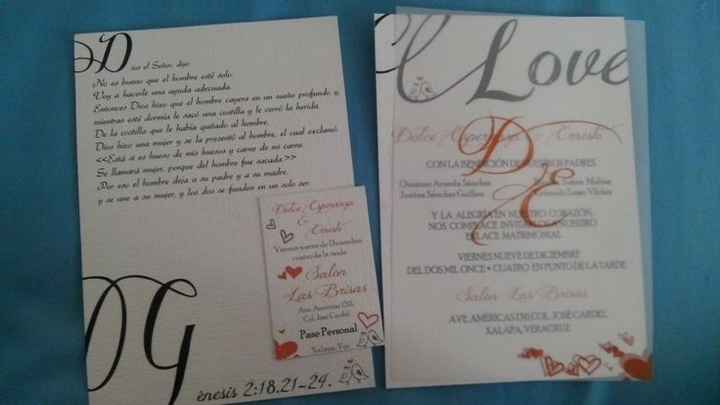 Dios el Señor, dijo:
No es bueno que el hombre esté solo.
Voy a hacerle una ayuda adecuada.
Entonces Dios hizo que el hombre cayera en un sueño profundo y
mientras esté dormía le sacó una costilla y le cerró la herida.
De la costilla que le había quitado al hombre,
Dios hizo una mujer y se la presentó al hombre, el cual exclamó:
<<Está si es hueso de mis huesos y carne de mi carne.
Se llamará mujer, porque del hombre fue sacada.>>
Por eso el hombre deja a su padre y a su madre,
y se une a su mujer, y los dos se funden en un solo ser.
Génesis 2:18.21-24.
Dulce Esperanza
&
Ernesto
Viernes nueve de Diciembre
cuatro de la tarde
Salon
Las Brisas
Ave. Americas
Col. José Cardel
Pase Personal
Xalapa, Ver.
Love
Dulce Esperanza y Ernesto
D
E
CON LA BENDICIÓN DE NUESTROS PADRES
Sánchez
Molina
Sánchez
Vilchis
Y LA ALEGRIA EN NUESTRO CORAZÓN,
NOS COMPLACE INVITARLOS A NUESTRO
ENLACE MATRIMONIAL
VIERNES NUEVE DE DICIEMBRE
DEL DOS MIL ONCE • CUATRO EN PUNTO DE LA TARDE
Salon Las Brisas
AVE. AMERICAS COL. JOSÉ CARDEL
XALAPA, VERACRUZ